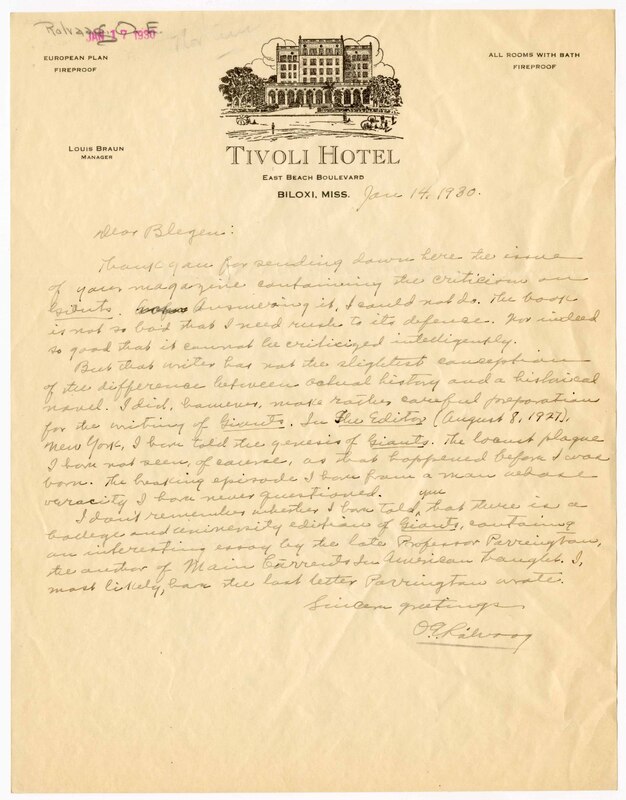 Rolvaag O E
JAN 17 1930
EUROPEAN PLAN
FIREPROOF
ALL ROOMS WITH BATH
FIREPROOF
LOUIS BRAUN
MANAGER
TIVOLI HOTEL
EAST BEACH BOULEVARD
BILOXI, MISS.
Jan 14, 1930.
Dear Blegen:
Thank you for sending down here the issue
of your magazine containing the criticism on
Giants. Answering it, I could not do. The book
is not so bad that I need rush to its defense. Nor indeed
so good that it cannot be criticized intelligently.
But that writer has not the slightest conception
of the difference between actual history and a historical
novel. I did, however, make rather careful preparation
for the writing of Giants. In The Editor (August 8, 1927),
New York, I have told the genesis of Giants. The locust plague
I have not seen, of course, as that happened before I was
born. The breaking episode I have from a man whose
veracity I have never questioned.
I don't remember whether I have told you, that there is a
College and University edition of Giants, containing
an interesting essay by the late Professor Parrington,
the author of Main Currents In American Thought. I,
most likely, have the last letter Parrington wrote.
Sincere greetings
O E Rölvaag